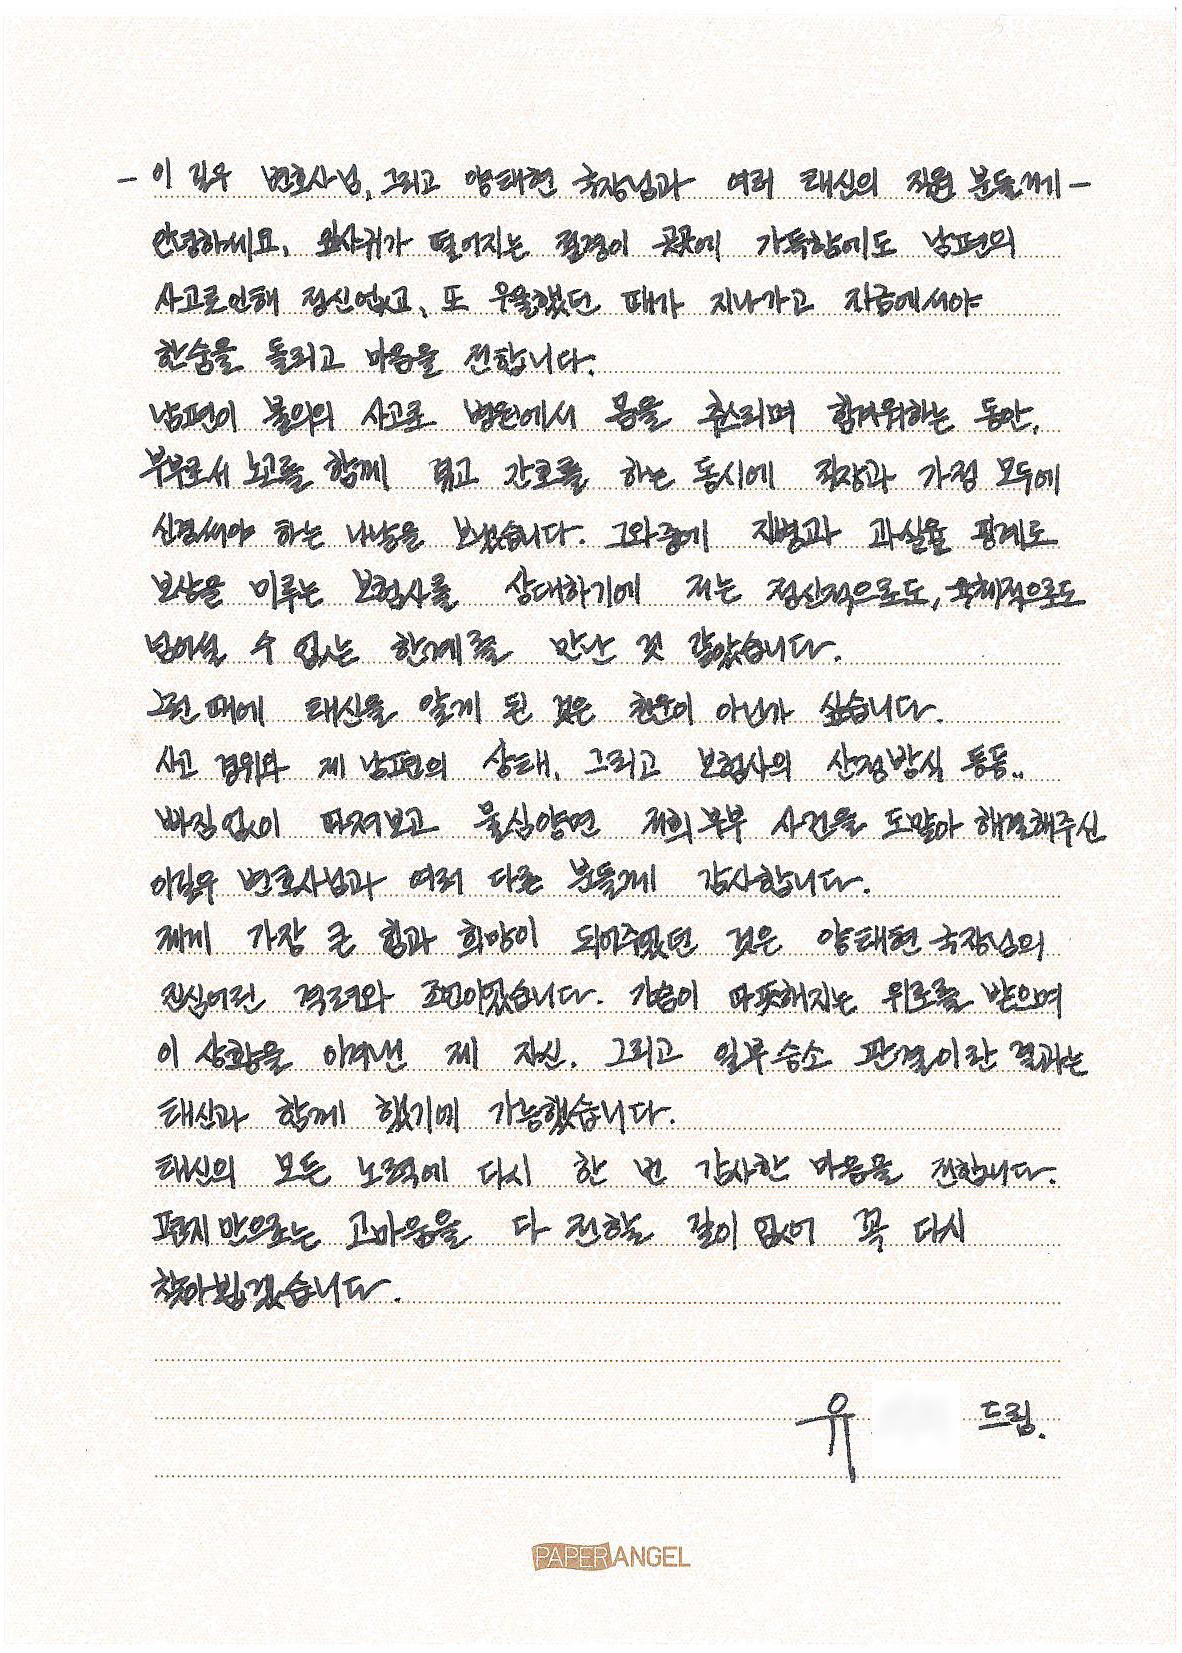 - 이길우 변호사님, 그리고 양태현 국장님과 여러 태신의 직원 분들께 -
안녕하세요, 잎사귀가 떨어지는 절경이 곳곳에 가득함에도 남편의
사고로인해 정신없고, 또 우울했던 때가 지나가고 지금에서야
한숨을 돌리고 마음을 전합니다.
남편이 불의의 사고로 병원에서 몸을 추스리며 힘겨워하는 동안,
부부로서 노고를 함께 겪고 간호를 하는 동시에 직장과 가정 모두에
신경써야 하는 나날을 보냈습니다. 그와중에 지병과 과실을 핑계로
보상을 미루는 보험사를 상대하기에 저는 정신적으로도, 육체적으로도
넘어설 수 없는 한계를 만난 것 같았습니다.
그런 때에 태신을 알게 된 것은 천운이 아닌가 싶습니다.
사고 경위와 제 남편의 상태, 그리고 보험사의 산정방식 등등..
빠짐없이 따져보고 물심양면 저희부부 사건을 도맡아 해결해주신
이길우 변호사님과 여러 다른 분들께 감사합니다.
제게 가장 큰 힘과 희망이 되어주었던 것은 양태현 국장님의
진심어린 격려와 조언이었습니다. 가슴이 따뜻해지는 위로를 받으며
이 상황을 이겨낸 제 자신, 그리고 일부승소 판결이란 결과는
태신과 함께 했기에 가능했습니다.
태신의 모든 노력에 다시 한 번 감사한 마음을 전합니다.
편지만으로는 고마움을 다 전할 길이 없어 꼭 다시
찾아뵙겠습니다.
유 드림.
PAPERANGEL